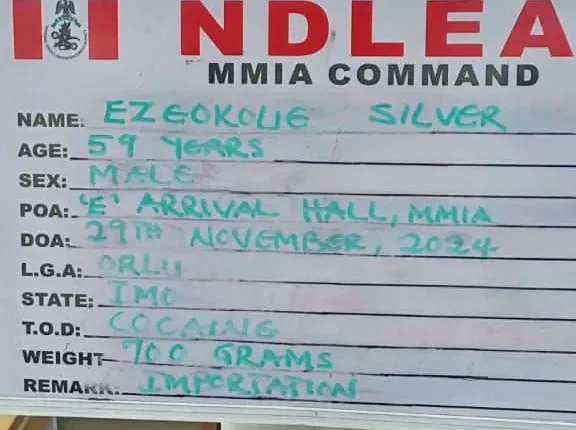 NDLEA
MMIA COMMAND
NAME: EZEOKOLIE SILVER
AGE: 59 YEARS
SEX: MALE
POA: 'E' ARRIVAL HALL, MMIA
DOA: 29TH NOVEMBER, 2024
L.G.A: ORLU
STATE: IMO
T.O.D: COCAINE
WEIGHT 700 GRAMS
REMARK: IMPORTATION